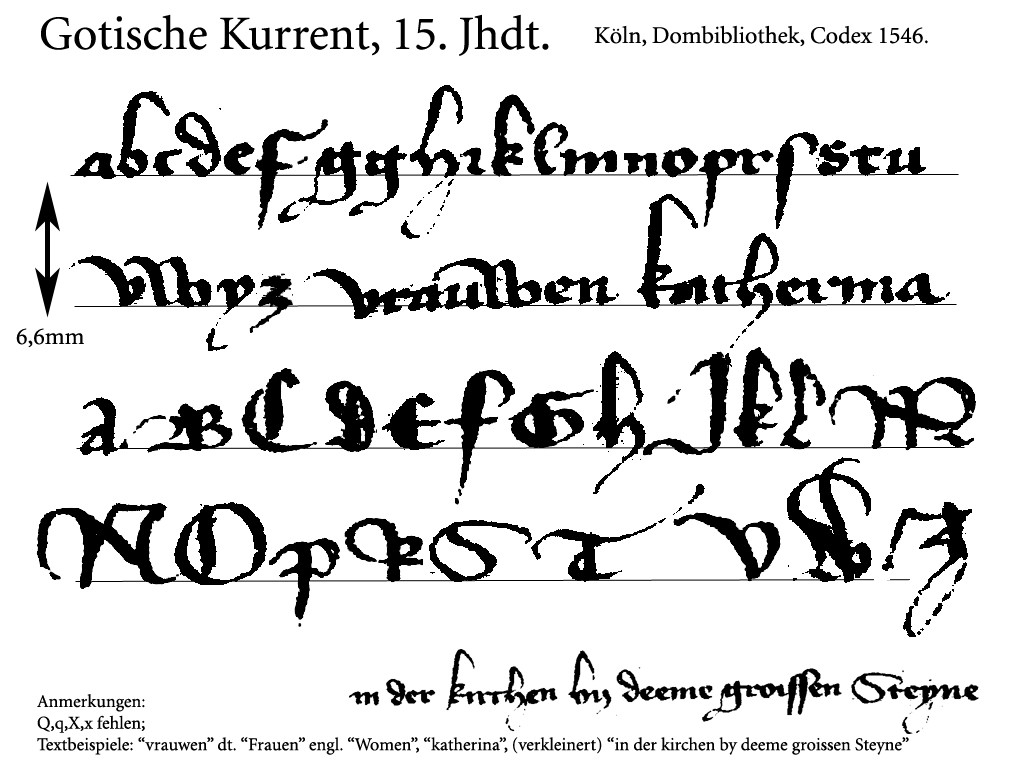 Gotische Kurrent, 15. Jhdt. Köln, Dombibliothek, Codex 1546.
abcdefgghiklmnoprſstu
6,6mm
vwyz vrauwen katherina
A B C D E F G H I K L M
N O P R S T V W Z
in der kirchen by deeme groiſſen Steyne
Anmerkungen:
Q,q,X,x fehlen;
Textbeispiele: “vrauwen” dt. “Frauen” engl. “Women”, “katherina”, (verkleinert) “in der kirchen by deeme groissen Steyne”